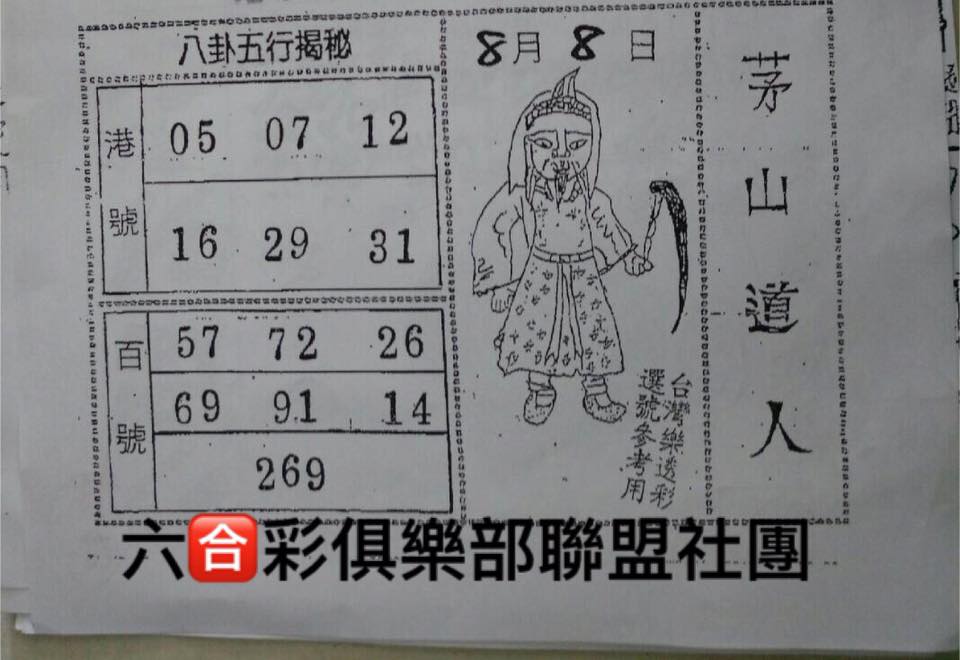 八卦五行揭秘
港號
05 07 12
16 29 31
百號
57 72 26
69 91 14
269
8月8日
台灣樂透彩
選號參考用
茅山道人
六合彩俱樂部聯盟社團